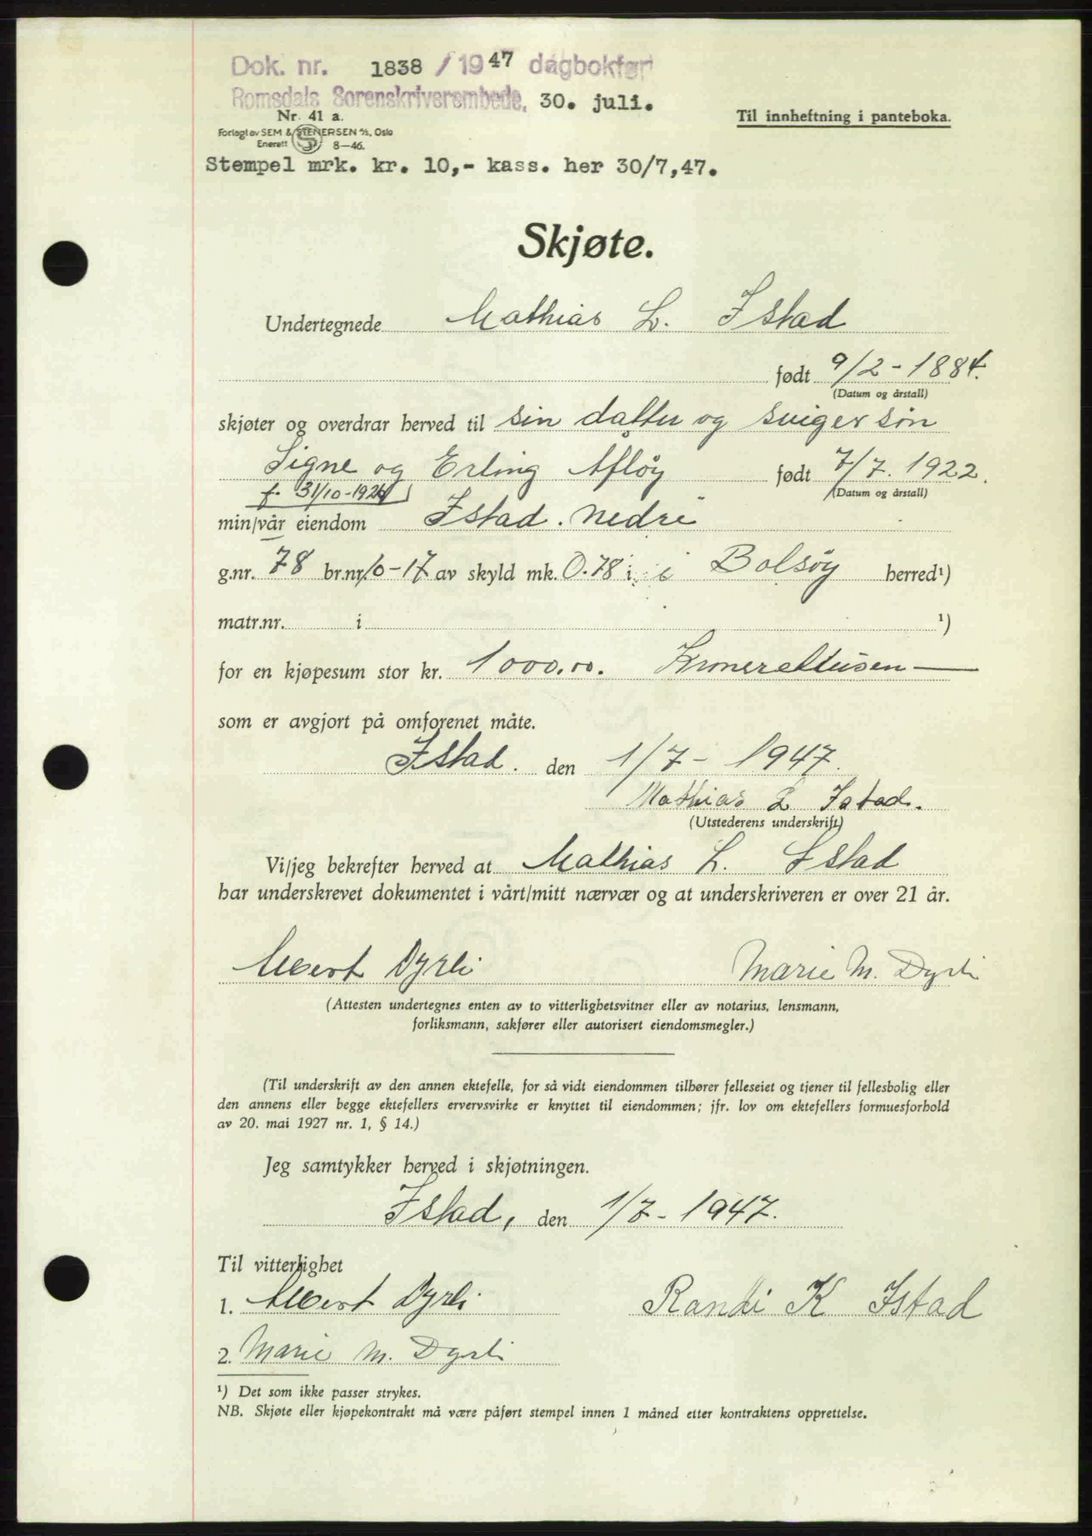 Dok. nr. 1838 / 1947 dagbokført
Romsdals Sorenskriverembede, 30. juli.
Nr. 41 a.
Til innheftning i panteboka.
Forlagt av SEM & STENERSEN A/S, Oslo
Enerett 8—46.
Stempel mrk. kr. 10,- kass. her 30/7,47.
Skjøte.
Undertegnede Mathias L. Istad
født 9/2 - 1884.
(Datum og årstall)
skjøter og overdrar herved til sin datter og svigersøn
Signe og Erling Afløy født 7/7. 1922.
f. 31/10-1924
(Datum og årstall)
min/vår eiendom Istad. nedre
g.nr. 78 br.nr. 6-17 av skyld mk. 0.78 i i Bolsøy herred¹)
matr.nr. i ¹)
for en kjøpesum stor kr. 1000,00. Kronerettusen —
som er avgjort på omforenet måte.
Istad. den 1/7 - 1947.
Mathias L Istad.
(Utstederens underskrift)
Vi/jeg bekrefter herved at Mathias L. Istad
har underskrevet dokumentet i vårt/mitt nærvær og at underskriveren er over 21 år.
Albert Dyrli Marie M. Dyrli
(Attesten undertegnes enten av to vitterlighetsvitner eller av notarius, lensmann,
forliksmann, sakfører eller autorisert eiendomsmegler.)
(Til underskrift av den annen ektefelle, for så vidt eiendommen tilhører felleseiet og tjener til fellesbolig eller
den annens eller begge ektefellers ervervsvirke er knyttet til eiendommen; jfr. lov om ektefellers formuesforhold
av 20. mai 1927 nr. 1, § 14.)
Jeg samtykker herved i skjøtningen.
Istad, den 1/7 - 1947.
Til vitterlighet
1. Albert Dyrli Randi K Istad
2. Marie M. Dyrli
¹) Det som ikke passer strykes.
NB. Skjøte eller kjøpekontrakt må være påført stempel innen 1 måned etter kontraktens opprettelse.